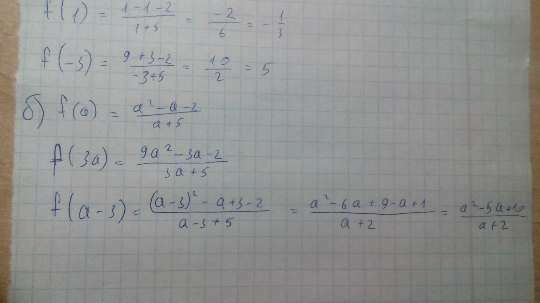 f(1) = \frac{1-1-2}{1+5} = \frac{-2}{6} = -\frac{1}{3}
f(-3) = \frac{9+3-2}{-3+5} = \frac{10}{2} = 5
б) f(a) = \frac{a^2-a-2}{a+5}
f(3a) = \frac{9a^2-3a-2}{3a+5}
f(a-3) = \frac{(a-3)^2-a+3-2}{a-3+5} = \frac{a^2-6a+9-a+1}{a+2} = \frac{a^2-5a+10}{a+2}